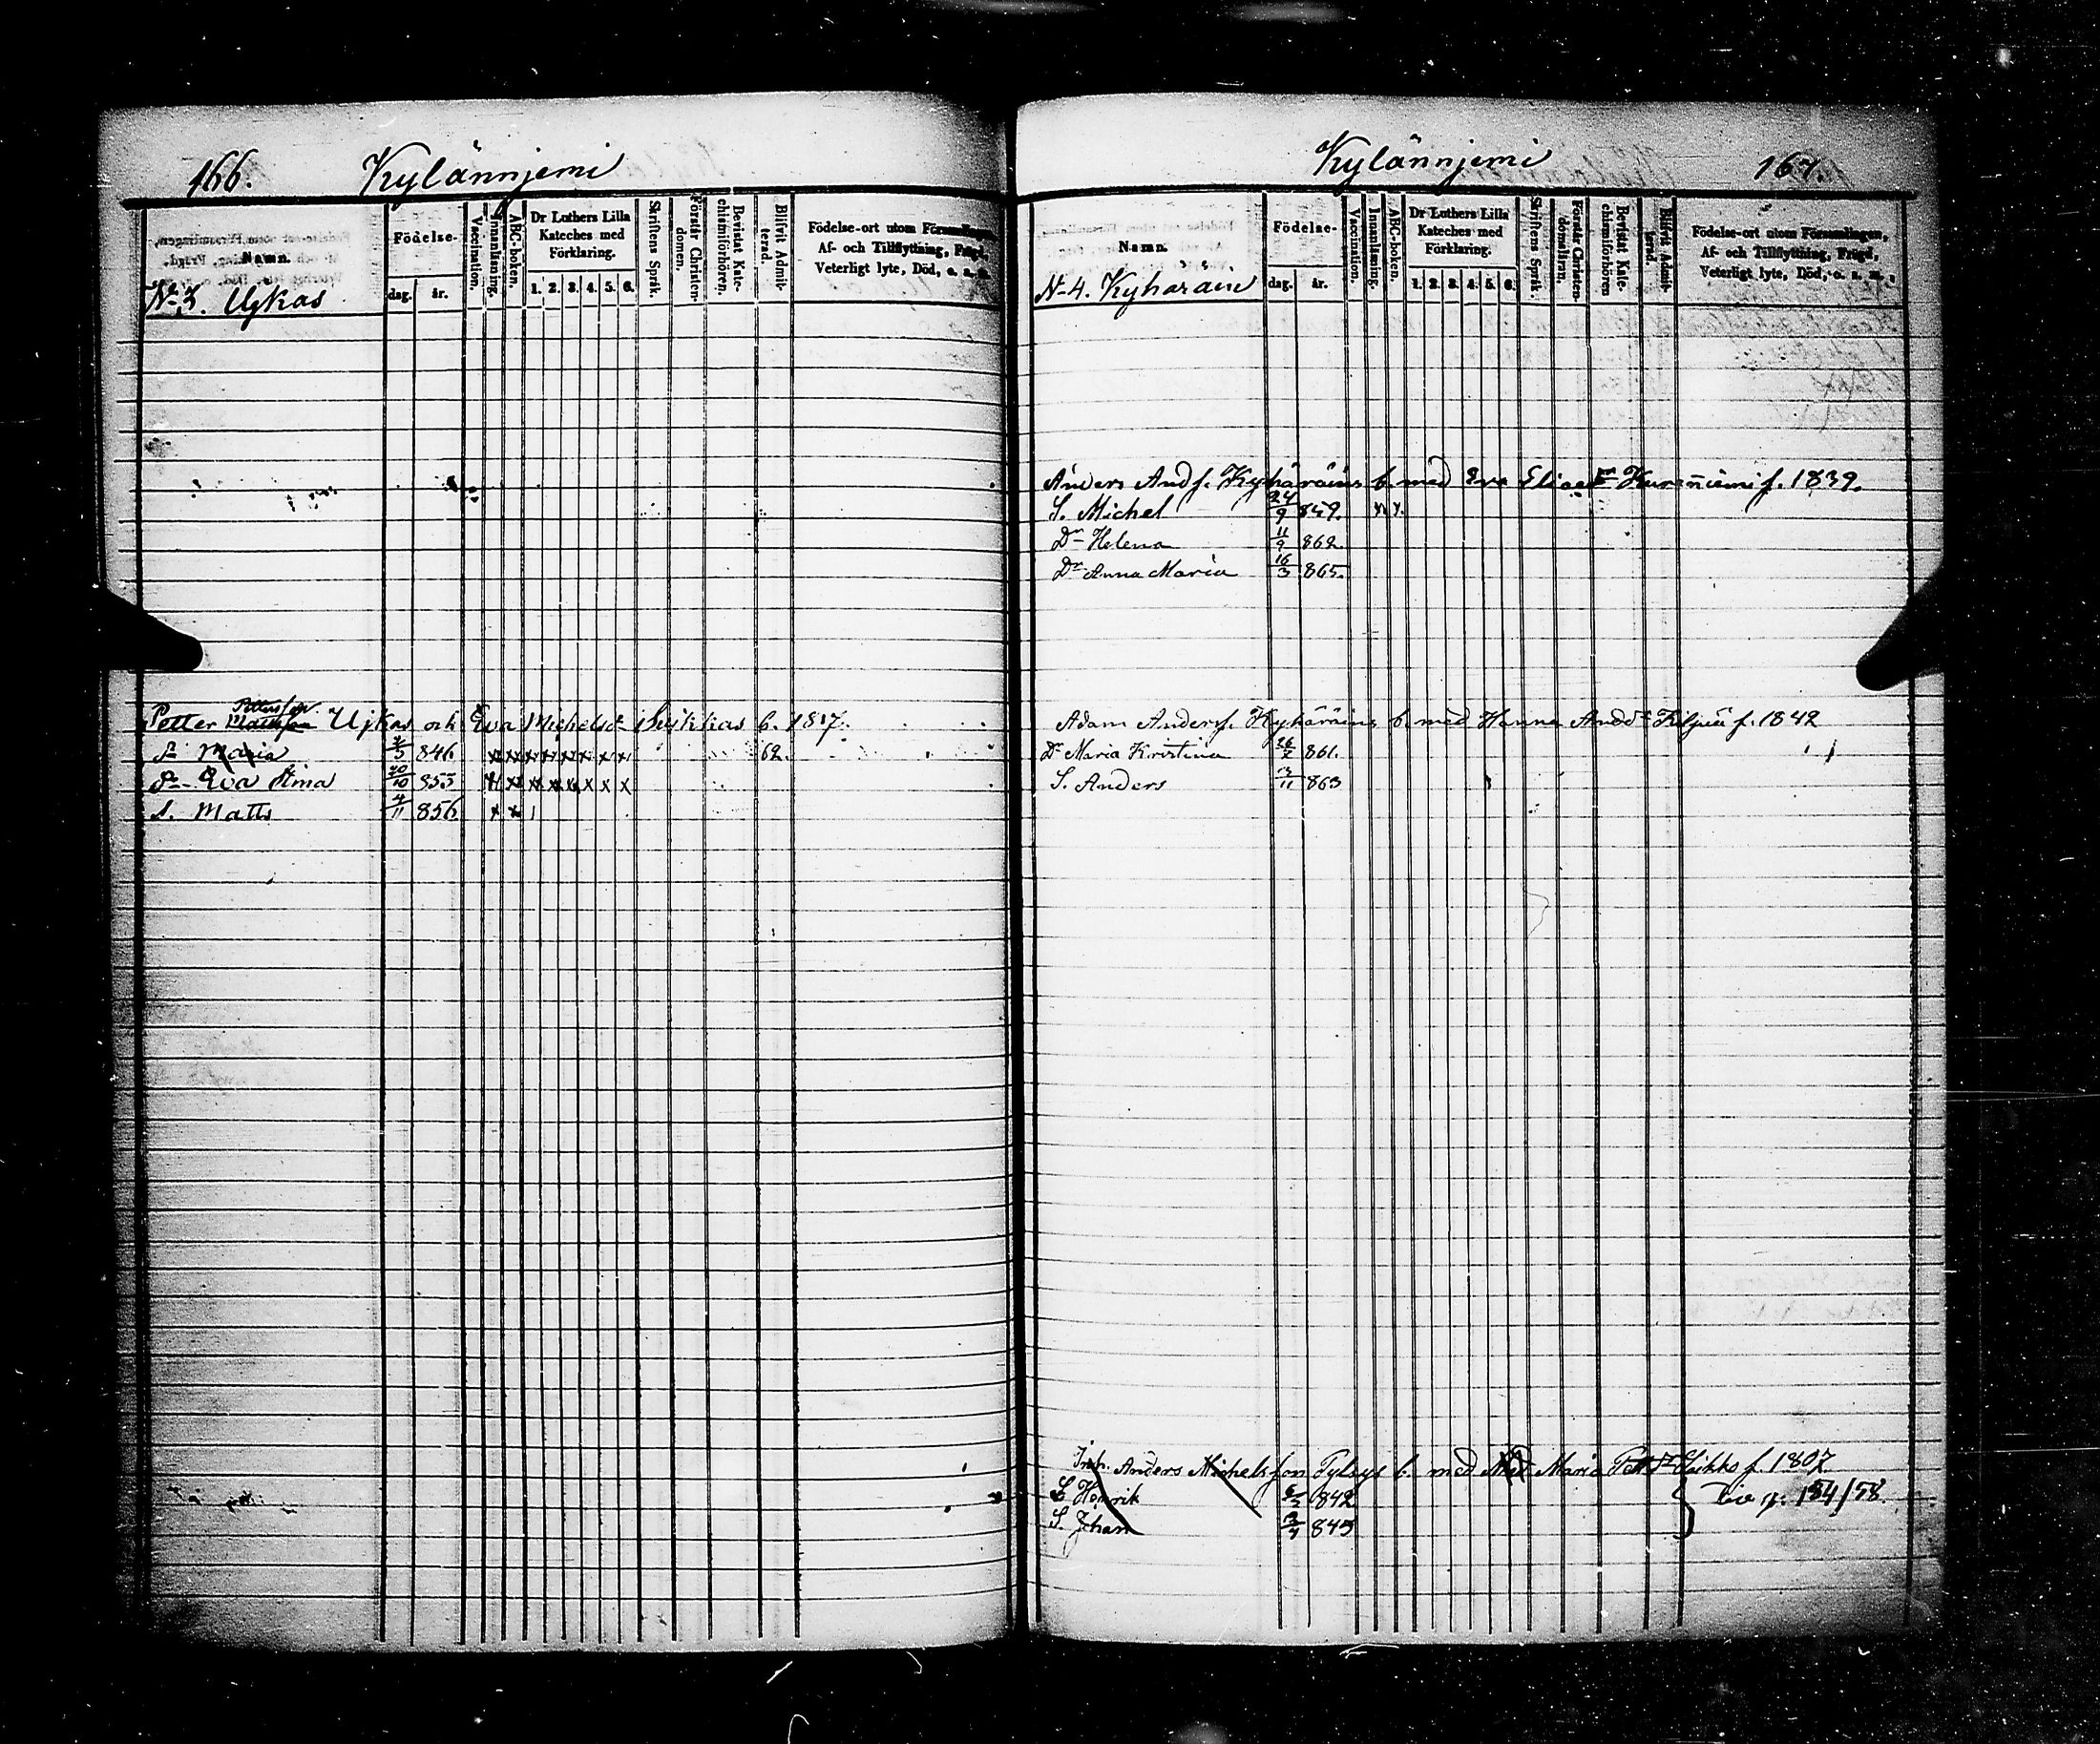 166. Kylännjemi
Namn.
Födelse-
dag. år.
Vaccination.
Innanläsning.
ABC-boken.
Dr Luthers Lilla Kateches med Förklaring.
1. 2. 3. 4. 5. 6.
Skriftens Språk.
Förstår Christendomen.
Bevistat Katechismiförhören.
Blifvit Admitterad.
Födelse-ort utom Församlingen,
Af- och Tillflyttning, Frägd,
Veterligt lyte, Död, o. s. m.
No 3. Ujkas
Pettersson
Petter Mattsson Ujkas och Eva Michelsd. b. 1817.
Dr Maria 5 846 x x x x x x x x 62.
Dr Eva Stina 20/10 853 x x x x x x x x
S. Matts 4/11 856 x x
Kylännjemi 167.
Namn.
Födelse-
dag. år.
Vaccination.
Innanläsning.
ABC-boken.
Dr Luthers Lilla Kateches med Förklaring.
1. 2. 3. 4. 5. 6.
Skriftens Språk.
Förstår Christendomsläran.
Bevistat Katechismiförhören
Blifvit Admitterad.
Födelse-ort utom Församlingen,
Af- och Tillflyttning, Frägd,
Veterligt lyte, Död, o. s. m.
N-4. Kyhäräin
Anders Ands. Kyhäräins b. med Eva Eliaed. Kurenniemi f. 1839.
S. Michel 24/9 849. x x.
Dr Helena 11/9 862.
Dr Anna Maria 16/3 865.
Adam Anders. Kyhäräins b. med Hanna Andsd. Filppu f. 1842
Dr Maria Kristina 26/2 861.
S. Anders 11 863
Inh. Anders Michelsson Tylsys b. med Maria Pettd. f. 1807
S. Henrik 842
S. Johan 845
184/58.